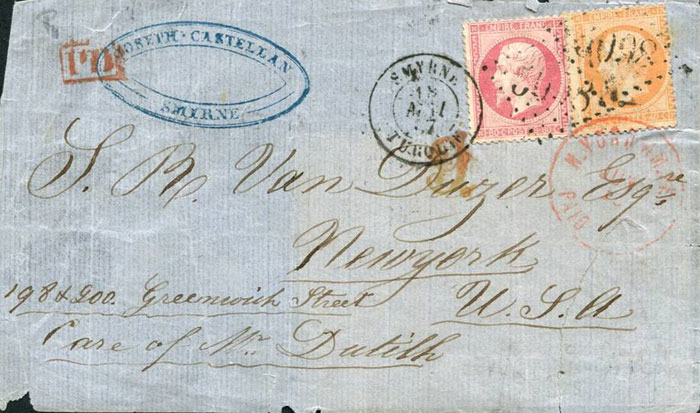 PD
JOSEPH·CASTELLAN
SMYRNE
SMYRNE
18
TURQUIE
EMPIRE FRANC
EMPIRE FRANC
5098
PAID
S. R. Van Duzer Esqre
Newyork
198 & 200. Greenwich Street U.S.A
Care of Mr. Dutilh